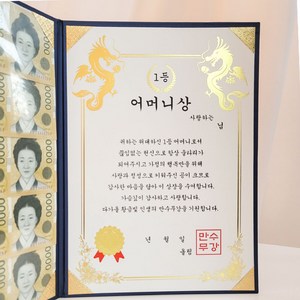 1등
어머니상
사랑하는
님
귀하는 위대하신 1등 어머니로서
끊임없는 헌신으로 항상 울타리가
되어주시고 가정의 행복만을 위해
사랑과 정성으로 지켜주신 공이 크므로
감사한 마음을 담아 이 상장을 수여합니다.
가슴깊이 감사하고 사랑합니다.
다가올 황금빛 인생의 만수무강을 기원합니다.
년 월 일
올림
만수
무강